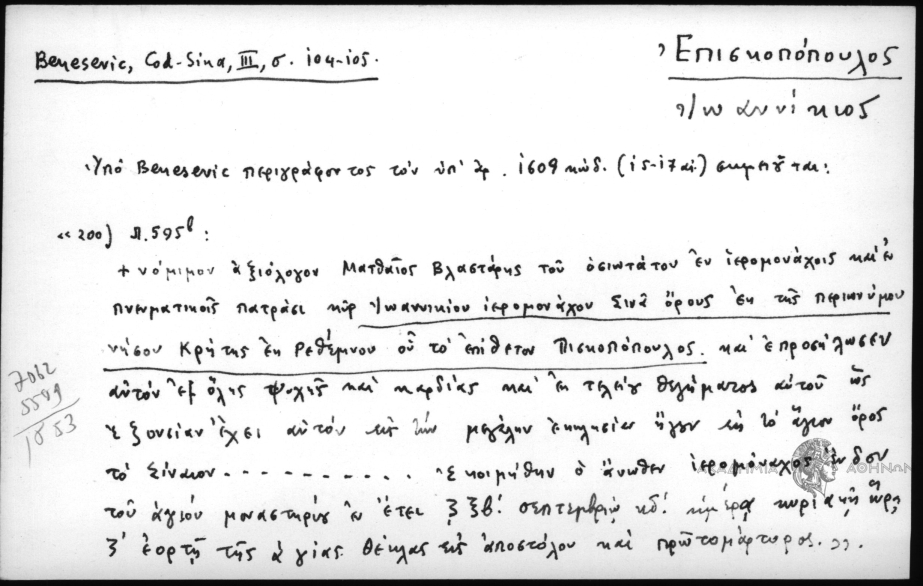 Benesevic, Cod-Sina, III, σ. 104-105.
Ἐπισκοπόπουλος
Ἰωαννίκιος
Ὑπό Benesevic περιγράφοντος τόν ὑπ' ἀρ. 1609 κώδ. (15-17 αἰ.) σημειοῦται:
«200) Л.595b:
+ νόμιμον ἀξιόλογον Ματθαῖος Βλαστάρης τοῦ ὁσιωτάτου ἐν ἱερομονάχοις καί ἐν
πνευματικοῖς πατράσι κύρ Ἰωαννικίου ἱερομονάχου Σινᾶ ὄρους ἐκ τῆς περιωνύμου
νήσου Κρήτης ἐκ Ρεθέμνου οὗ τό ἐπίθετον Πισκοπόπουλος. καί ἐπροσήλωσεν
αὐτόν ἐξ ὅλης ψυχῆς καί καρδίας καί ἐν τελείῳ θελήματος αὐτοῦ ὡς
ἐξουσίαν ἔχει αὐτόν εἰς τήν μεγάλην ἐκκλησίαν ἤγουν εἰς τό ἅγιον ὄρος
τό Σίναιον - - - - - - - - - - Ἐκοιμήθην ὁ ἄνωθεν ἱερομόναχος ἔνδον
τοῦ ἁγίου μοναστηρίου ἐν ἔτει ζξβ΄. σεπτεμβρίῳ κδ΄. ἡμέρᾳ κυριακῇ ὥρᾳ
ζ΄ ἑορτῇ τῆς ἁγίας Θέκλας εἰς ἀποστόλου καί πρωτομάρτυρος.»».
7062
5549
1553
ΑΚΑΔΗΜΙΑ ΑΘΗΝΩΝ